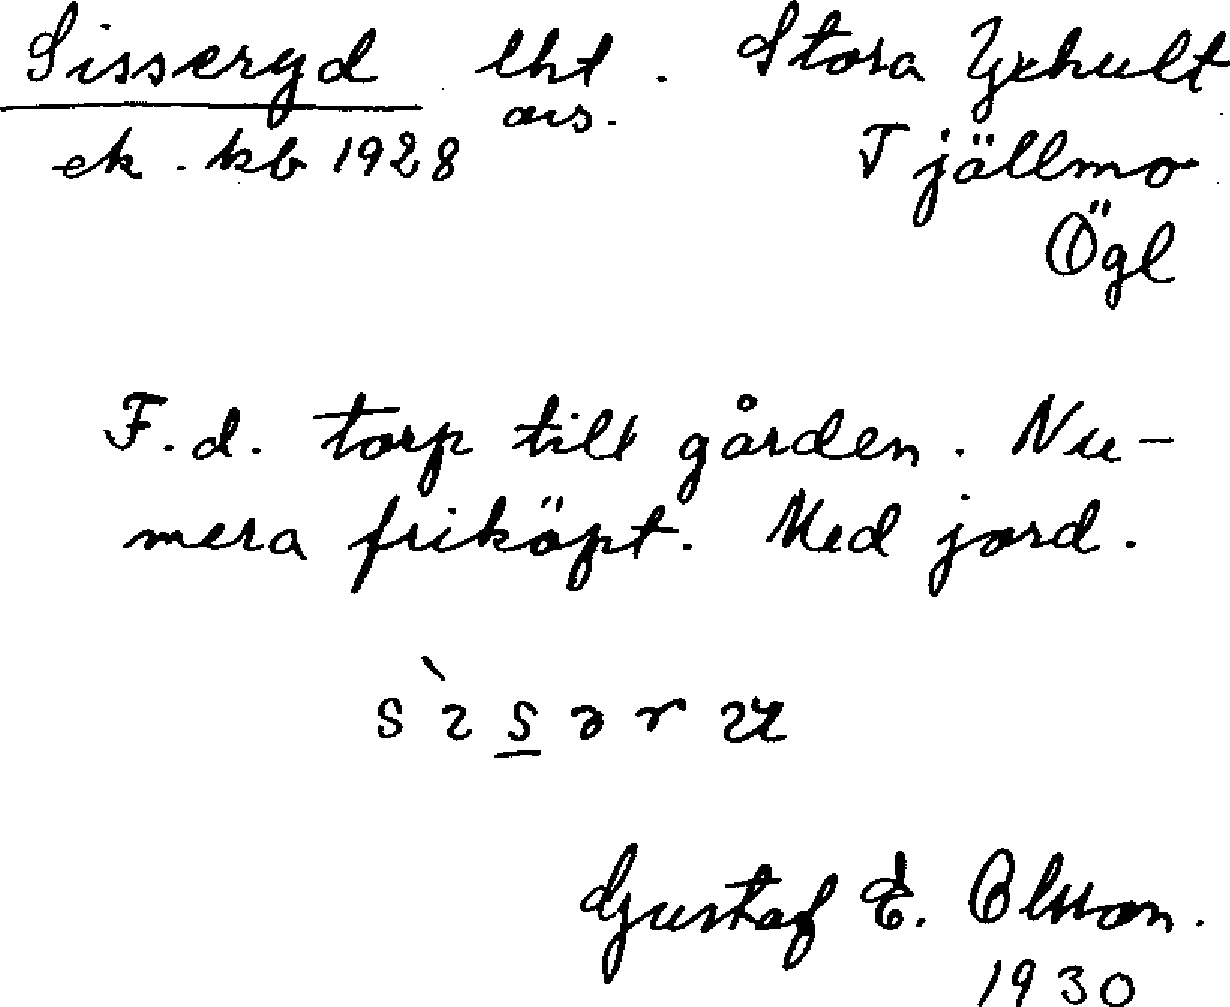 Sisseryd lht. Stora Yxhult
avs.
ek. kb 1928 Tjällmo
Ögl
F.d. torp till gården. Nu-
mera friköpt. Med jord.
Gustaf E. Olsson.
1930